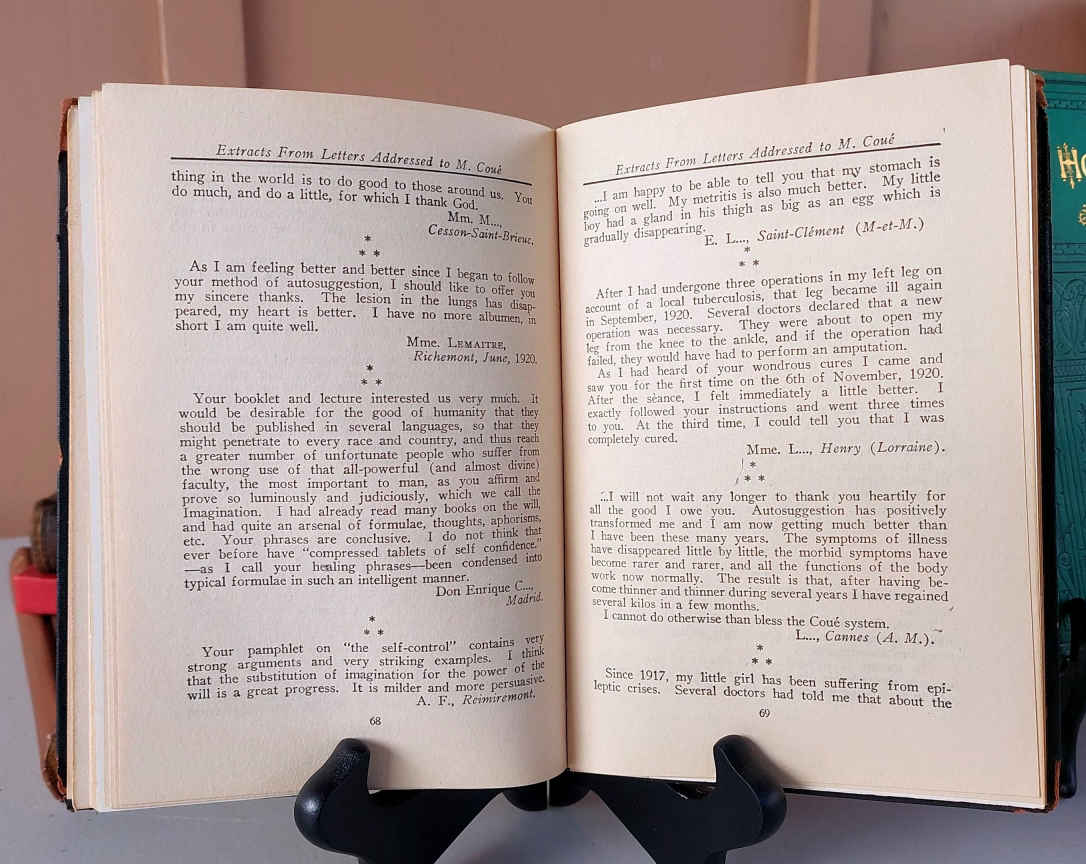 Extracts From Letters Addressed to M. Coué
thing in the world is to do good to those around us. You
do much, and do a little, for which I thank God.
Mm. M...,
Cesson-Saint-Brieuc.
*
* *
As I am feeling better and better since I began to follow
your method of autosuggestion, I should like to offer you
my sincere thanks. The lesion in the lungs has disap-
peared, my heart is better. I have no more albumen, in
short I am quite well.
Mme. LEMAITRE,
Richemont, June, 1920.
*
* *
Your booklet and lecture interested us very much. It
would be desirable for the good of humanity that they
should be published in several languages, so that they
might penetrate to every race and country, and thus reach
a greater number of unfortunate people who suffer from
the wrong use of that all-powerful (and almost divine)
faculty, the most important to man, as you affirm and
prove so luminously and judiciously, which we call the
Imagination. I had already read many books on the will,
and had quite an arsenal of formulae, thoughts, aphorisms,
etc. Your phrases are conclusive. I do not think that
ever before have "compressed tablets of self confidence,"
—as I call your healing phrases—been condensed into
typical formulae in such an intelligent manner.
Don Enrique C...,
Madrid.
*
* *
Your pamphlet on "the self-control" contains very
strong arguments and very striking examples. I think
that the substitution of imagination for the power of the
will is a great progress. It is milder and more persuasive.
A. F., Reimiremont.
68
Extracts From Letters Addressed to M. Coué
...I am happy to be able to tell you that my stomach is
going on well. My metritis is also much better. My little
boy had a gland in his thigh as big as an egg which is
gradually disappearing.
E. L..., Saint-Clément (M-et-M.)
*
* *
After I had undergone three operations in my left leg on
account of a local tuberculosis, that leg became ill again
in September, 1920. Several doctors declared that a new
operation was necessary. They were about to open my
leg from the knee to the ankle, and if the operation had
failed, they would have had to perform an amputation.
As I had heard of your wondrous cures I came and
saw you for the first time on the 6th of November, 1920.
After the séance, I felt immediately a little better. I
exactly followed your instructions and went three times
to you. At the third time, I could tell you that I was
completely cured.
Mme. L..., Henry (Lorraine).
*
* *
...I will not wait any longer to thank you heartily for
all the good I owe you. Autosuggestion has positively
transformed me and I am now getting much better than
I have been these many years. The symptoms of illness
have disappeared little by little, the morbid symptoms have
become rarer and rarer, and all the functions of the body
work now normally. The result is that, after having be-
come thinner and thinner during several years I have regained
several kilos in a few months.
I cannot do otherwise than bless the Coué system.
L..., Cannes (A. M.).
*
* *
Since 1917, my little girl has been suffering from epi-
leptic crises. Several doctors had told me that about the
69